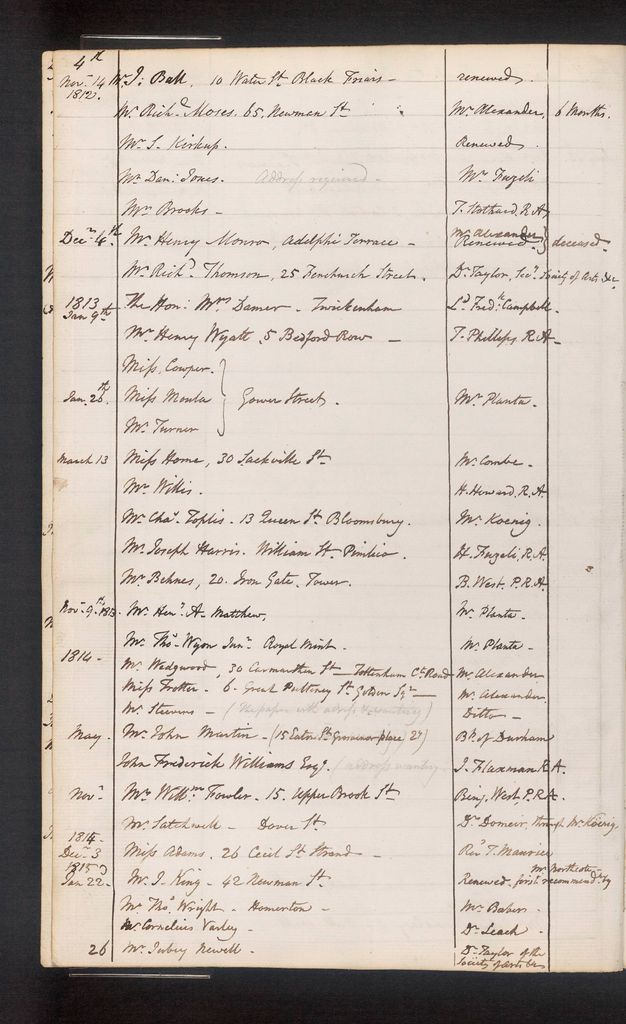 4th
Novr. 14 Mr. J: Ball, 10 Water St. Black Friars - renewed.
1812.
Mr. Richd. Moses. 65, Newman St Mr. Alexander, 6 Months.
Mr. S. Kirkup. Renewed.
Mr. Dan: Jones. Address required - Mr. Fuzeli
Mr. Brooks - T. Stothard, R.A
Decr. 4th. Mr. Henry Monro, Adelphi Terrace - Mr. Alexander
Renewed } deceased.
Mr. Richd. Thomson, 25 Fenchurch Street. Dr. Taylor, Secy. Society of Arts &c
1813 The Hon: Mrs. Damer - Twickenham Ld. Fredk. Campbell.
Jan 9th
Mr. Henry Wyatt, 5 Bedford Row - T. Phillips R.A -
Miss Cowper.
Jan. 26th Miss Moula } Gower Street. Mr. Planta -
Mr. Turner
March 13 Miss Home, 30 Sackville St. Mr. Combe -
Mr. Willis. H. Howard, R.A.
Mr. Chas. Toplis. 13 Queen St. Bloomsbury. Mr. Koenig.
Mr. Joseph Harris. William St. Pimlico. H. Fuzeli, R.A.
Mr. Behnes, 20. Iron Gate, Tower. B. West, P.R.A.
Novr. 9th. 1813. Mr. Heny. A. Matthew, Mr. Planta -
Mr. Thos. Wyon Junr. Royal Mint. Mr. Planta -
1814 -
Mr. Wedgwood, 30 Carmarthen St - Tottenham Ct. Road Mr. Alexander
Miss Trotter - 6. Great Pulteney St. Golden Sqre - Mr. Alexander
Mr. Stevens - (the paper with address wanting) Ditto -
May. Mr. John Martin - (15 Eaton St. Grosvenor place) 27) Bp. of Durham
John Frederick Williams Esqr. (address wanting J. Flaxman R.A.
Novr. Mr. Willm. Fowler. 15. Upper Brook St Benj. West, P.R.A.
Mr. Satchwell - Dover St. Dr. Domeir, through Mr. Koenig
1814.
Decr. 3 Miss Adams. 26 Cecil St. Strand - Revd. T. Maurice
1815
Jan 22. Mr. J. King - 42 Newman St. Renewed, first recommend. by Mr Northcote
Mr. Thos. Wright - Homerton - Mr. Baber.
Mr. Cornelius Varley - Dr. Leach.
26 Mr. Jubey Newell - Dr. Taylor of the
Society of Arts &c